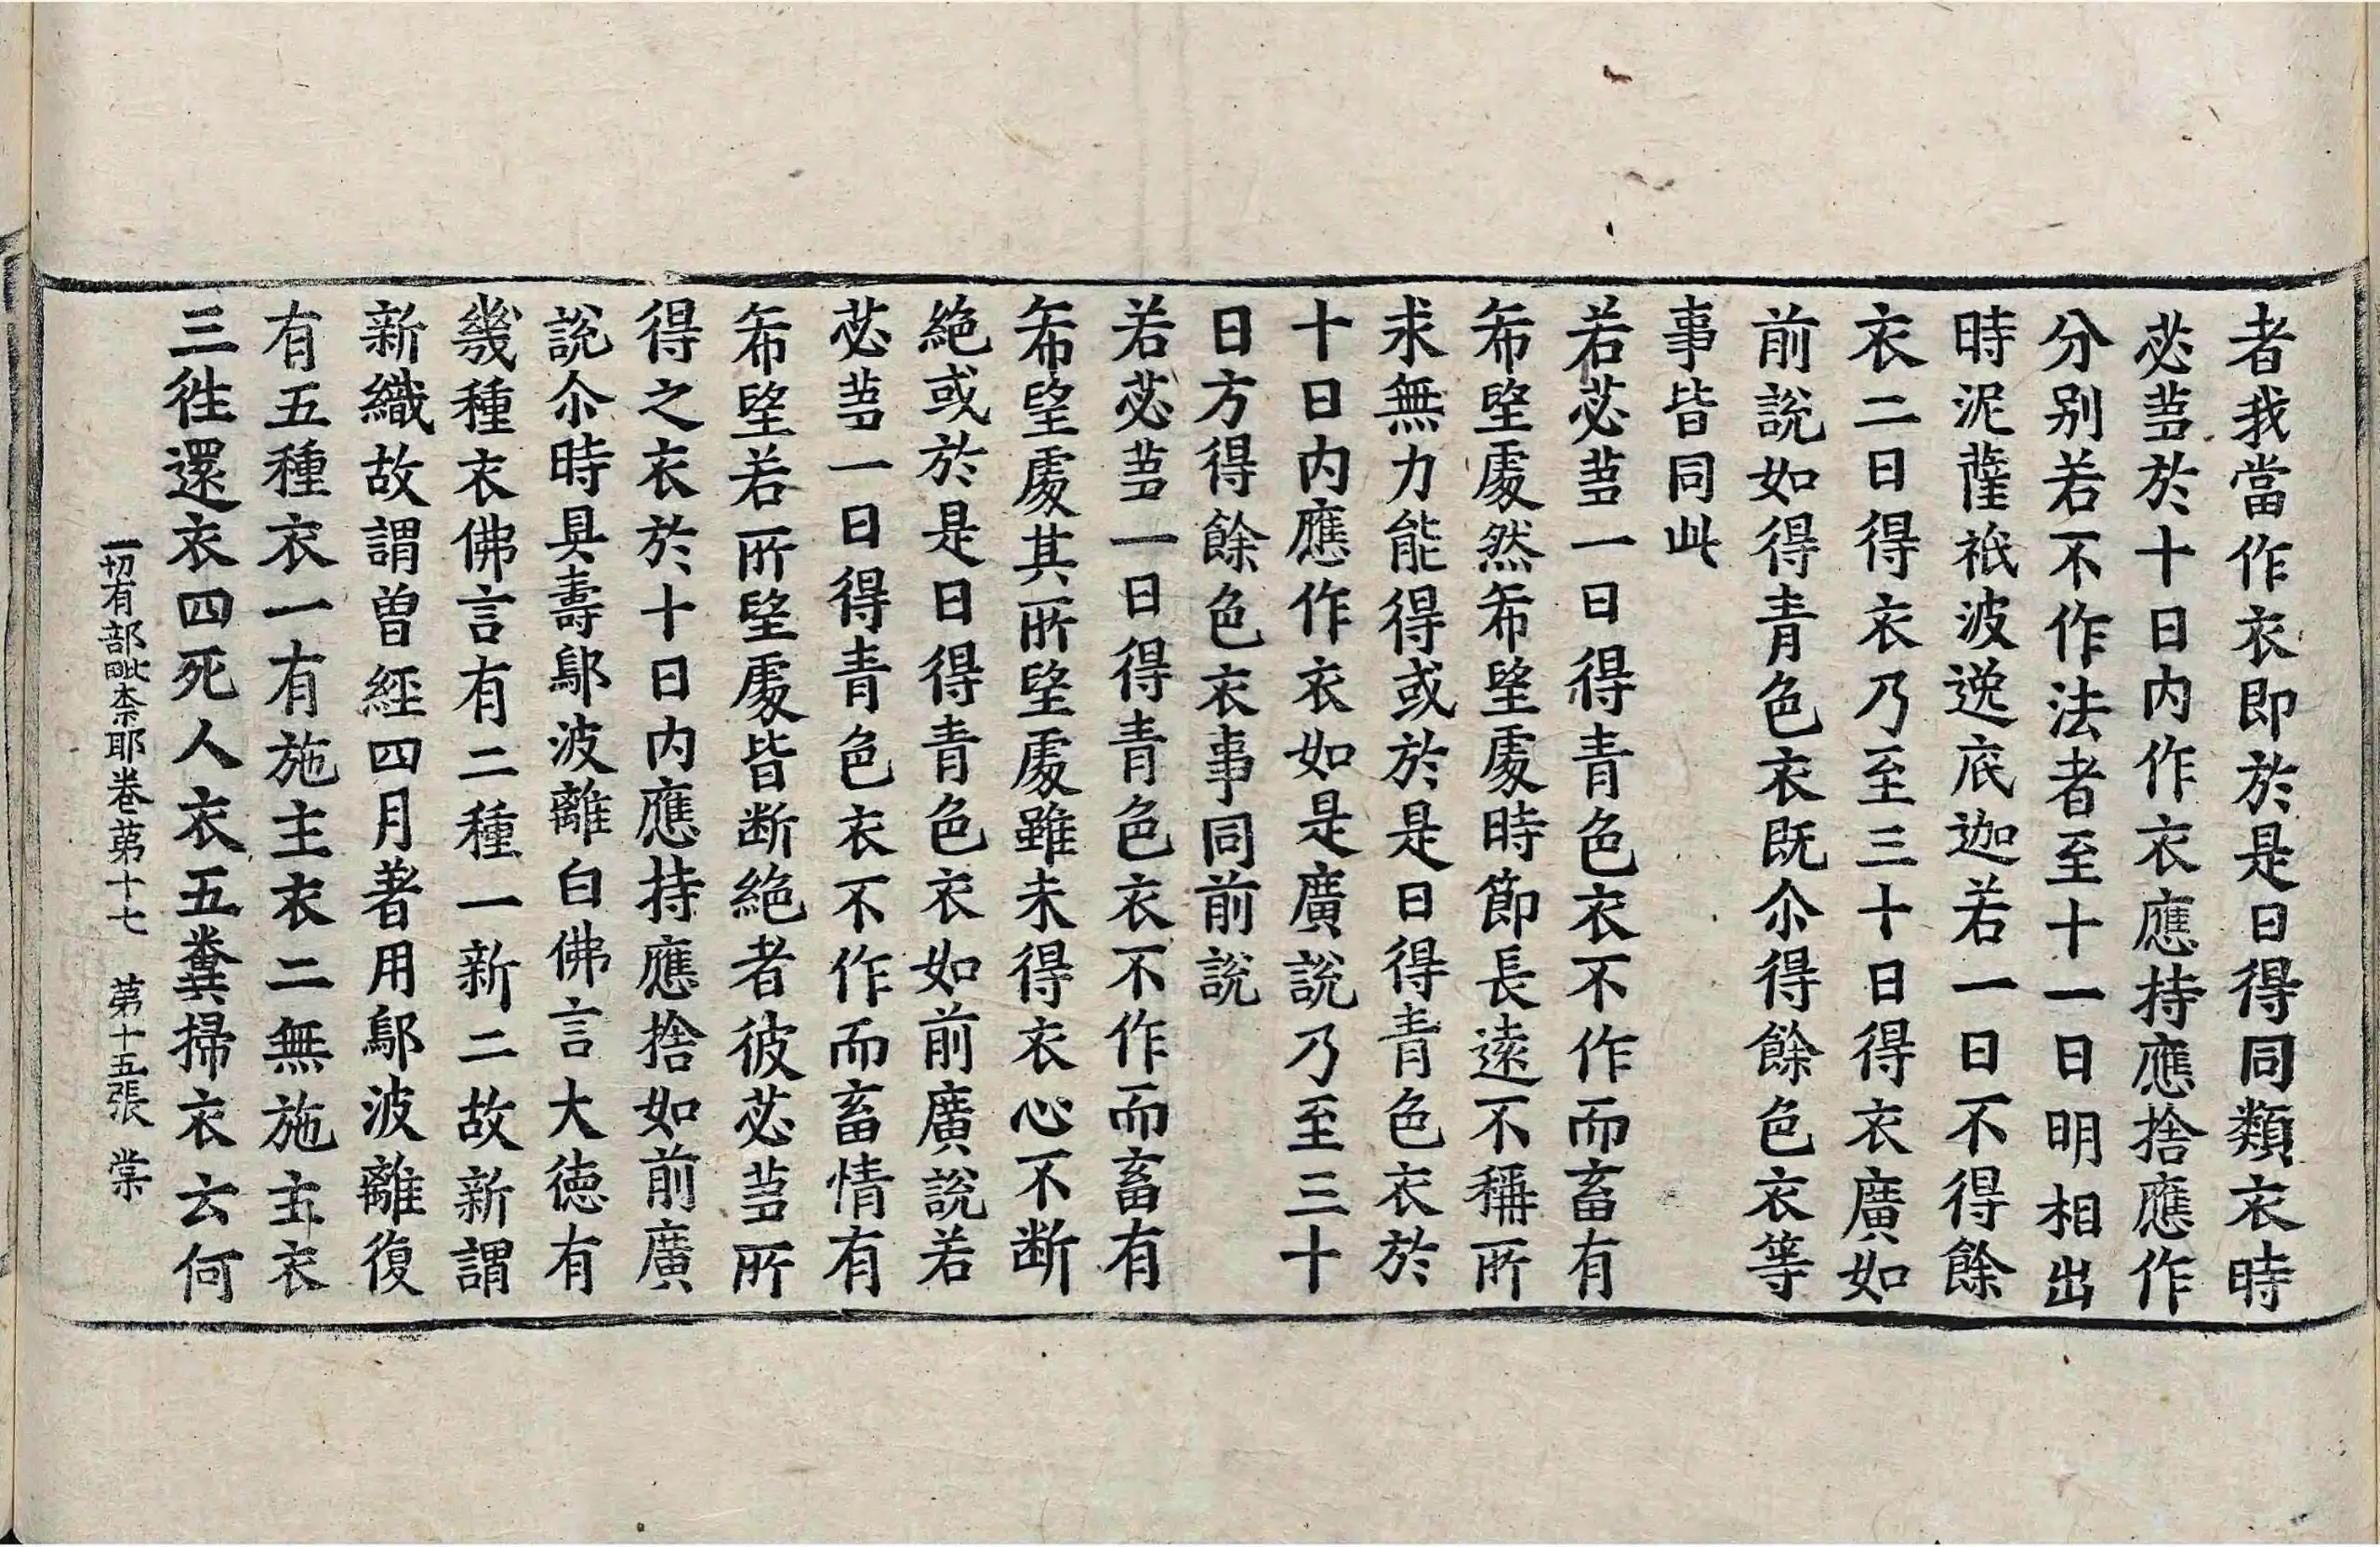 者我當作衣即於是日得同類衣時
苾芻於十日內作衣應持應捨應作
分別若不作法者至十一日明相出
時泥薩祇波逸底迦若一日不得餘
衣二日得衣乃至三十日得衣廣如
前說如得青色衣既尒得餘色衣等
事皆同此
若苾芻一日得青色衣不作而畜有
希望處然希望處時節長遠不稱所
求無力能得或於是日得青色衣於
十日內應作衣如是廣說乃至三十
日方得餘色衣事同前說
若苾芻一日得青色衣不作而畜有
希望處其所望處雖未得衣心不断
絕或於是日得青色衣如前廣說若
苾芻一日得青色衣不作而畜情有
希望若所望處皆断絕者彼苾芻所
得之衣於十日內應持應捨如前廣
說尒時具壽鄔波離白佛言大德有
幾種衣佛言有二種一新二故新謂
新織故謂曾經四月著用鄔波離復
有五種衣一有施主衣二無施主衣
三徃還衣四死人衣五糞掃衣云何
一切有部毗柰耶卷苐十七 苐十五張 棠